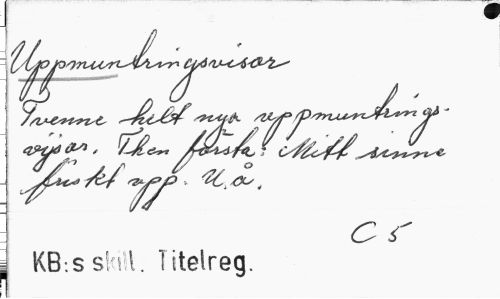 Uppmuntringsvisor
Tvenne helt nya uppmuntrings-
vijsor. Then första: Mitt sinne
friskt upp. U.å.
C 5
KB:s skill. Titelreg.